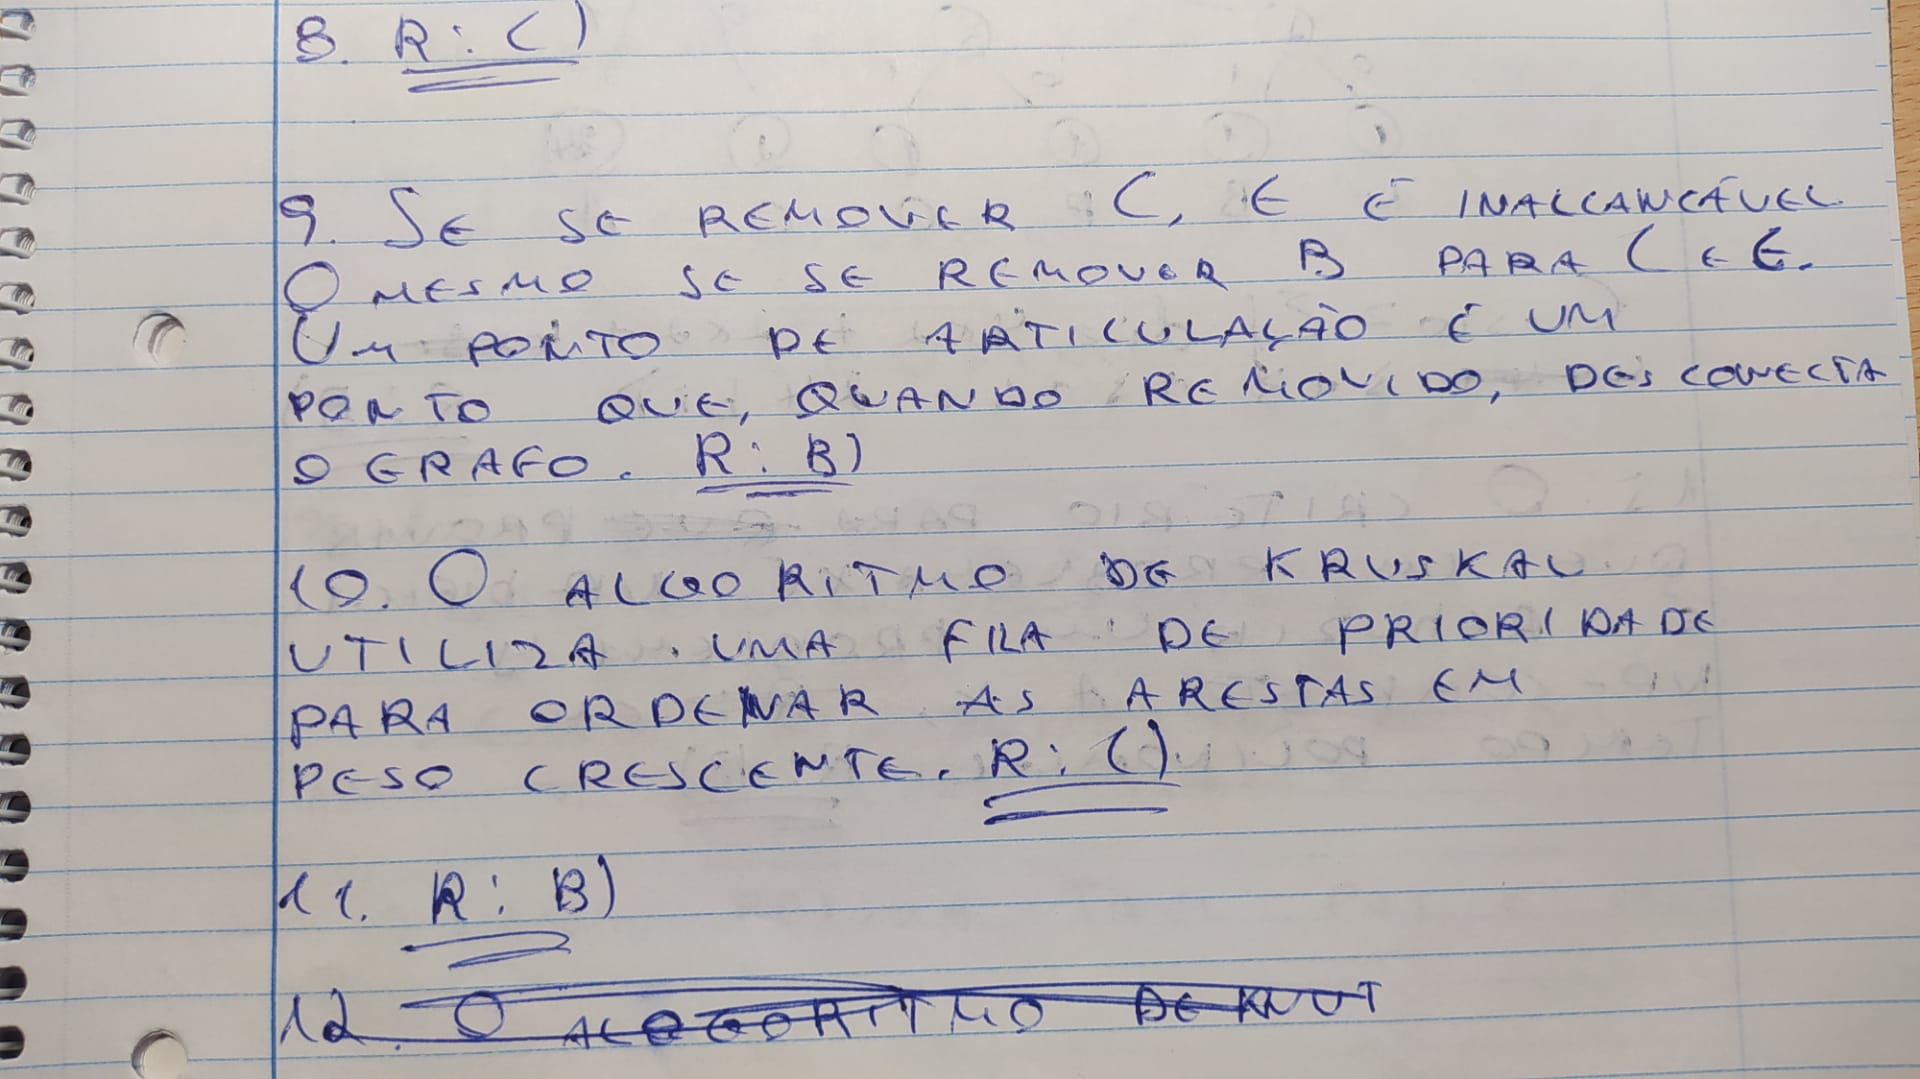 8. R: C)
9. SE SE REMOVER C, E É INALCANÇÁVEL.
O MESMO SE SE REMOVER B PARA C E E.
UM PONTO DE ARTICULAÇÃO É UM
PONTO QUE, QUANDO REMOVIDO, DESCONECTA
O GRAFO. R: B)
10. O ALGORITMO DE KRUSKAL
UTILIZA UMA FILA DE PRIORIDADE
PARA ORDENAR AS ARESTAS EM
PESO CRESCENTE. R: C)
11. R: B)
12. O ALGORITMO DE KNUT